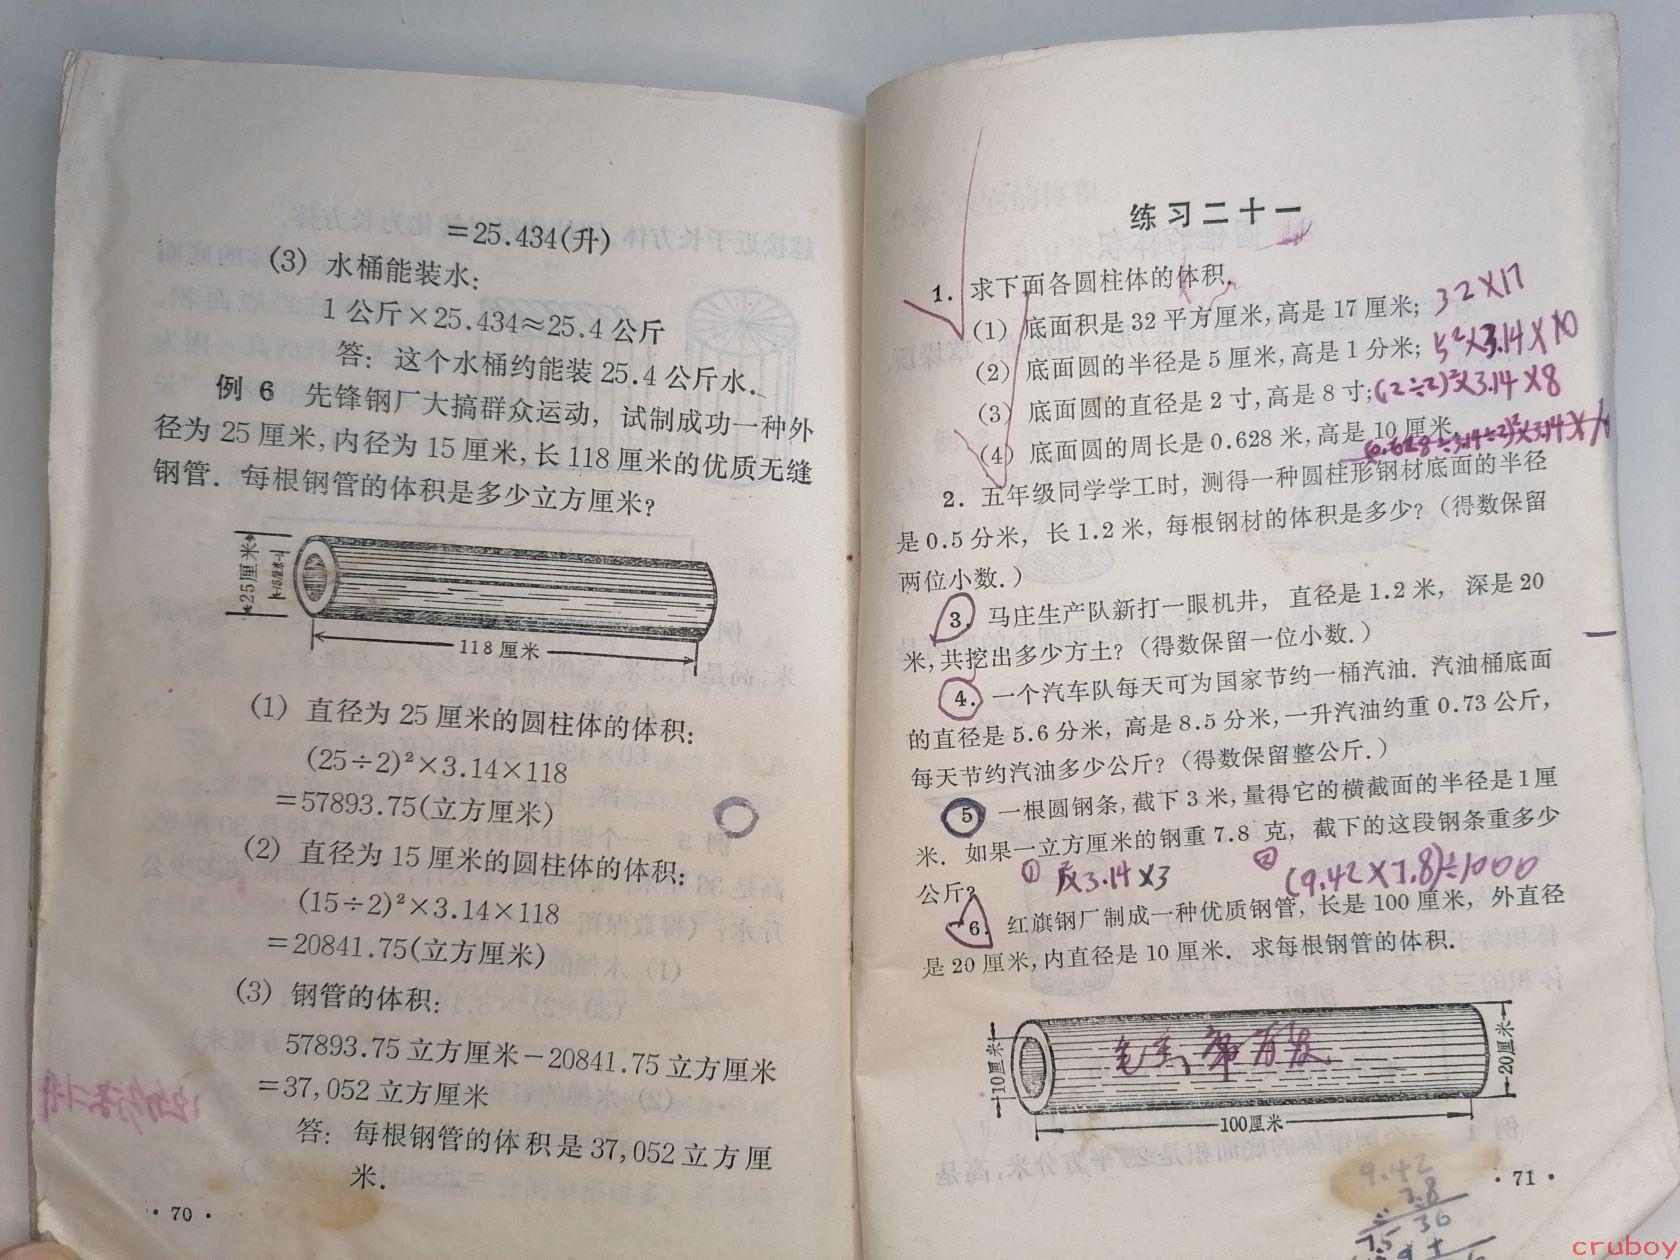 =25.434(升)
(3) 水桶能装水:
1公斤×25.434≈25.4公斤
答: 这个水桶约能装25.4公斤水.
例 6 先锋钢厂大搞群众运动, 试制成功一种外
径为25厘米,内径为15厘米,长118厘米的优质无缝
钢管. 每根钢管的体积是多少立方厘米?
25厘米
15厘米
118厘米
(1) 直径为25厘米的圆柱体的体积:
(25÷2)²×3.14×118
=57893.75(立方厘米)
(2) 直径为15厘米的圆柱体的体积:
(15÷2)²×3.14×118
=20841.75(立方厘米)
(3) 钢管的体积:
57893.75立方厘米-20841.75立方厘米
=37,052立方厘米
答: 每根钢管的体积是37,052立方厘
米.
·70·
练习二十一
1. 求下面各圆柱体的体积.
(1) 底面积是32平方厘米,高是17厘米; 32×17
(2) 底面圆的半径是5厘米,高是1分米; 5²×3.14×10
(3) 底面圆的直径是2寸,高是8寸; (2÷2)²×3.14×8
(4) 底面圆的周长是0.628米,高是10厘米.
(0.628÷3.14÷2)²×3.14×
2. 五年级同学学工时, 测得一种圆柱形钢材底面的半径
是0.5分米, 长1.2米, 每根钢材的体积是多少? (得数保留
两位小数.)
3. 马庄生产队新打一眼机井, 直径是1.2米, 深是20
米,共挖出多少方土? (得数保留一位小数.)
4. 一个汽车队每天可为国家节约一桶汽油. 汽油桶底面
的直径是5.6分米, 高是8.5分米,一升汽油约重0.73公斤,
每天节约汽油多少公斤? (得数保留整公斤.)
5. 一根圆钢条,截下3米,量得它的横截面的半径是1厘
米. 如果一立方厘米的钢重7.8克, 截下的这段钢条重多少
公斤?
① 3.14×3 ② (9.42×7.8)÷1000
6. 红旗钢厂制成一种优质钢管, 长是100厘米, 外直径
是20厘米,内直径是10厘米. 求每根钢管的体积.
10厘米
20厘米
100厘米
9.42
7.8
·71·
cruboy